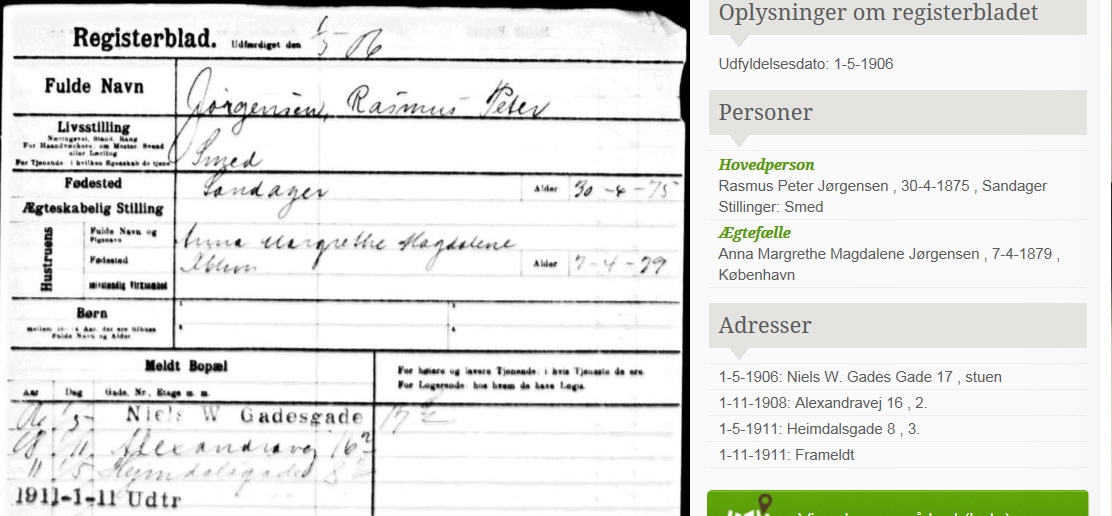 Registerblad. Udfærdiget den 1/5-06
Fulde Navn
Jørgensen, Rasmus Peter
Livsstilling
Næringsvej, Stand, Rang
For Haandværkere, om Mester, Svend
eller Lærling
For Tjenende i hvilken Egenskab de tjene
Smed
Fødested
Sandager
Alder 30-4-75
Ægteskabelig Stilling
Hustruens
Fulde Navn og
Pigenavn
Anna Margrethe Magdalene
Fødested
Kbhvn
Alder 7-4-79
Børn
Fulde Navn og Alder
Meldt Bopæl
For høiere og lavere Tjenende: i hvis Tjeneste de ere.
For Logerende: hos hvem de have Logis.
Aar Dag Gade, Nr., Etage m. m.
06 1/5 Niels W Gadesgade 17
08 1/11 Alexandravej 16 2
11 1/5 Heimdalsgade 8
1911-1-11 Udtr
Oplysninger om registerbladet
Udfyldelsesdato: 1-5-1906
Personer
Hovedperson
Rasmus Peter Jørgensen , 30-4-1875 , Sandager
Stillinger: Smed
Ægtefælle
Anna Margrethe Magdalene Jørgensen , 7-4-1879 ,
København
Adresser
1-5-1906: Niels W. Gades Gade 17 , stuen
1-11-1908: Alexandravej 16 , 2.
1-5-1911: Heimdalsgade 8 , 3.
1-11-1911: Frameldt